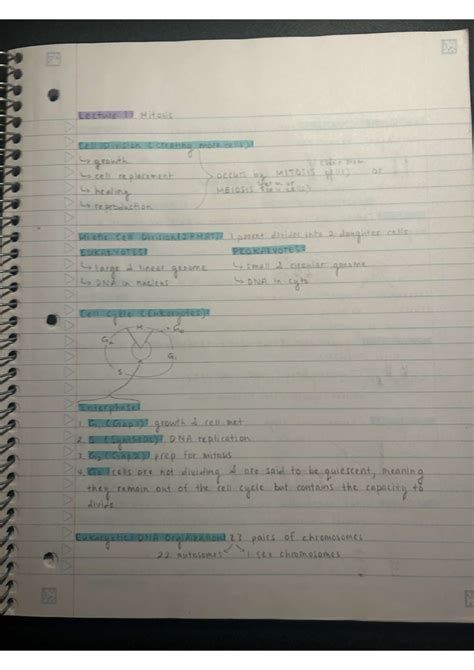 Lecture 1: Mitosis
Cell Division (creating more cells):
↳ growth
↳ cell replacement
↳ healing
↳ reproduction
occurs by MITOSIS or
MEIOSIS
Mitotic Cell Division (IPMAT): 1 parent divides into 2 daughter cells
EUKARYOTES: PROKARYOTES:
↳ large & linear genome ↳ small & circular genome
↳ DNA in nucleus ↳ DNA in cyto
Cell Cycle (Eukaryotes):
M G0
G2
G1
S
Interphase:
1. G1 (Gap 1): growth & cell met
2. S (Synthesis): DNA replication
3. G2 (Gap 2): prep for mitosis
4. G0: cells are not dividing & are said to be quiescent, meaning
they remain out of the cell cycle but contains the capacity to
divide
Eukaryotic DNA Organization: 23 pairs of chromosomes
22 autosomes 1 sex chromosomes